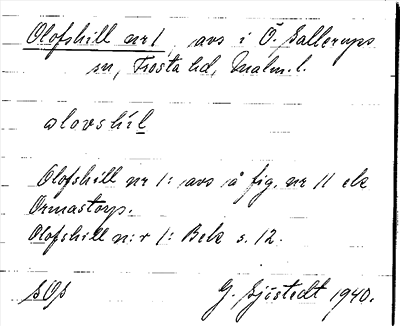 Olofshill nr 1, avs i Ö. Sallerups
sn, Frosta hd, Malm. l.
alovshil
Olofshill nr 1: avs å fig. nr 11 ek
Ormastorp.
Olofshill n:r 1: Bek s. 12.
G. Sjöstedt 1940.